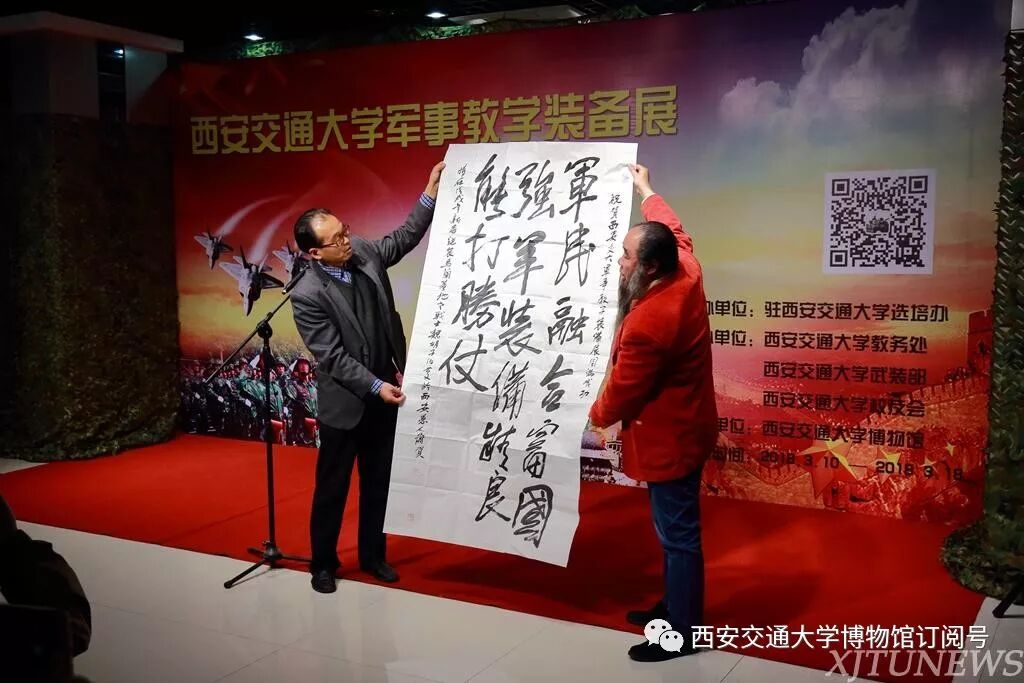 西安交通大学军事教学装备展
祝贺西安交大军事教学装备展圆满成功
軍民融合富國
強军装備精良
能打勝仗
办单位：驻西安交通大学选培办
办单位：西安交通大学教务处
西安交通大学武装部
西安交通大学校友会
单位：西安交通大学博物馆
时间：2018.3.10 — 2018.3.18
西安交通大学博物馆订阅号
XJTUNEWS